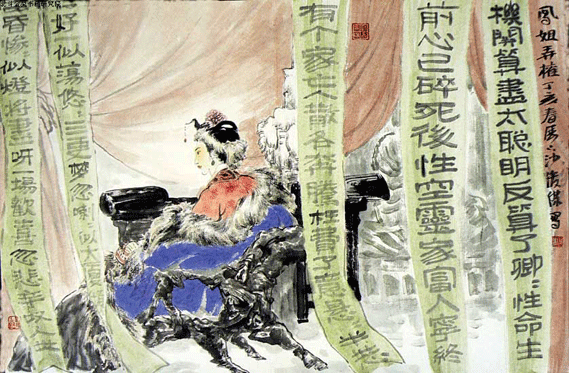 鳳姐弄權丁亥春
機關算盡太聰明反算了卿〻性命生
前心已碎死後性空靈家富人寧終
有個家亡人散各奔騰枉費了意懸
好似蕩悠〻三更夢忽喇〻似大
昏慘〻似燈將盡呀一場歡喜忽悲辛